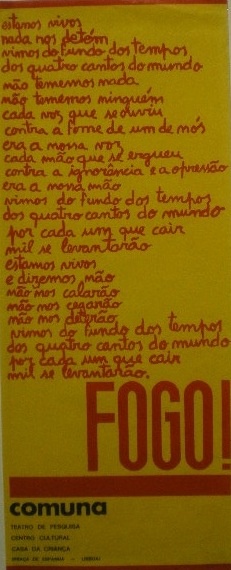 estamos vivos
nada nos detém
vimos do fundo dos tempos
dos quatro cantos do mundo
não tememos nada
não tememos ninguém
cada voz que se ouviu
contra a fome de um de nós
era a nossa voz
cada mão que se ergueu
contra a ignorância e a opressão
era a nossa mão
vimos do fundo dos tempos
dos quatro cantos do mundo
por cada um que cair
mil se levantarão
estamos vivos
e dizemos não
não nos calarão
não nos cegarão
não nos deterão
vimos do fundo dos tempos
dos quatro cantos do mundo
por cada um que cair
mil se levantarão.
FOGO!
comuna
TEATRO DE PESQUISA
CENTRO CULTURAL
CASA DA CRIANÇA
PRAÇA DE ESPANHA — LISBOA